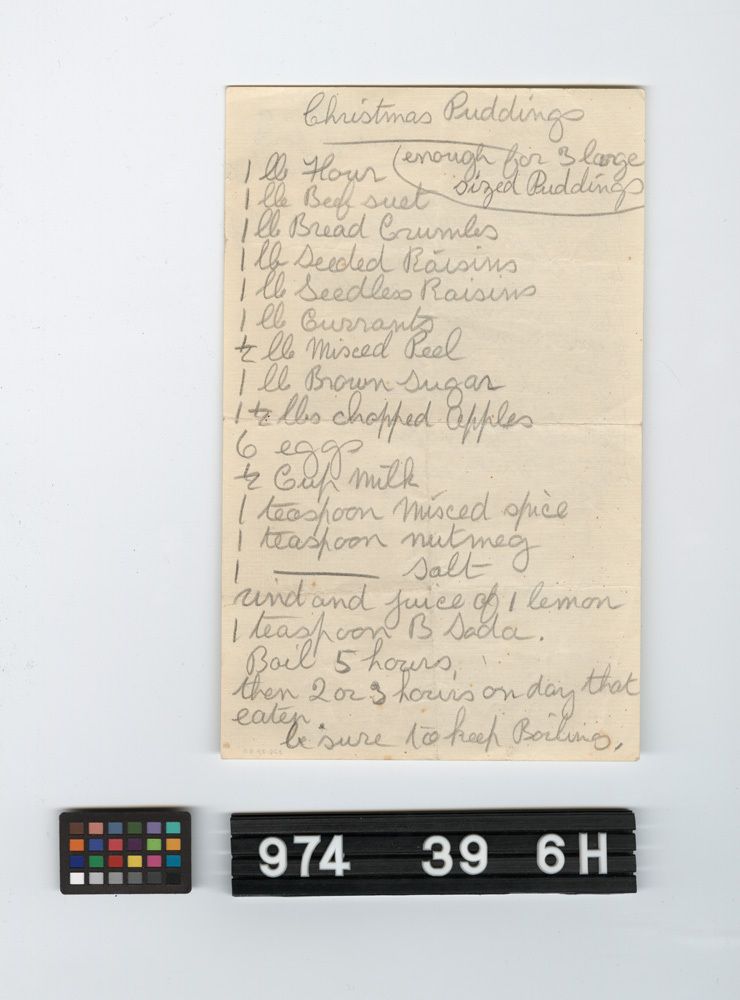 Christmas Puddings
1 lb Flour (enough for 3 large
sized Puddings
1 lb Beef suet
1 lb Bread Crumbs
1 lb Seeded Raisins
1 lb Seedless Raisins
1 lb Currants
½ lb Mixed Peel
1 lb Brown Sugar
1 ½ lbs chopped apples
6 eggs
½ Cup Milk
1 teaspoon Mixed spice
1 teaspoon nutmeg
1 ——— Salt
rind and juice of 1 lemon
1 teaspoon B Soda.
Boil 5 hours,
then 2 or 3 hours on day that
eaten.
be sure to keep Boiling.
974 39 6H